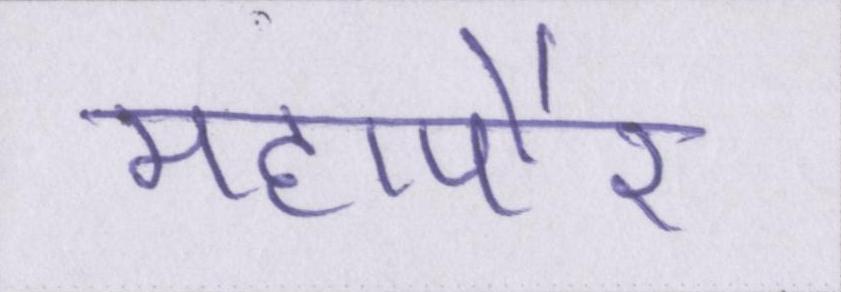 महापौर